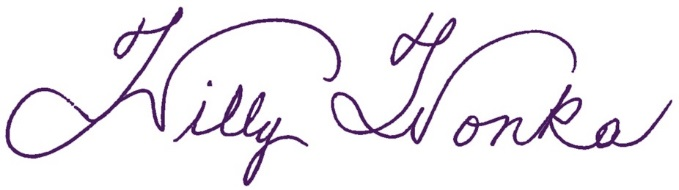 Willy Wonka